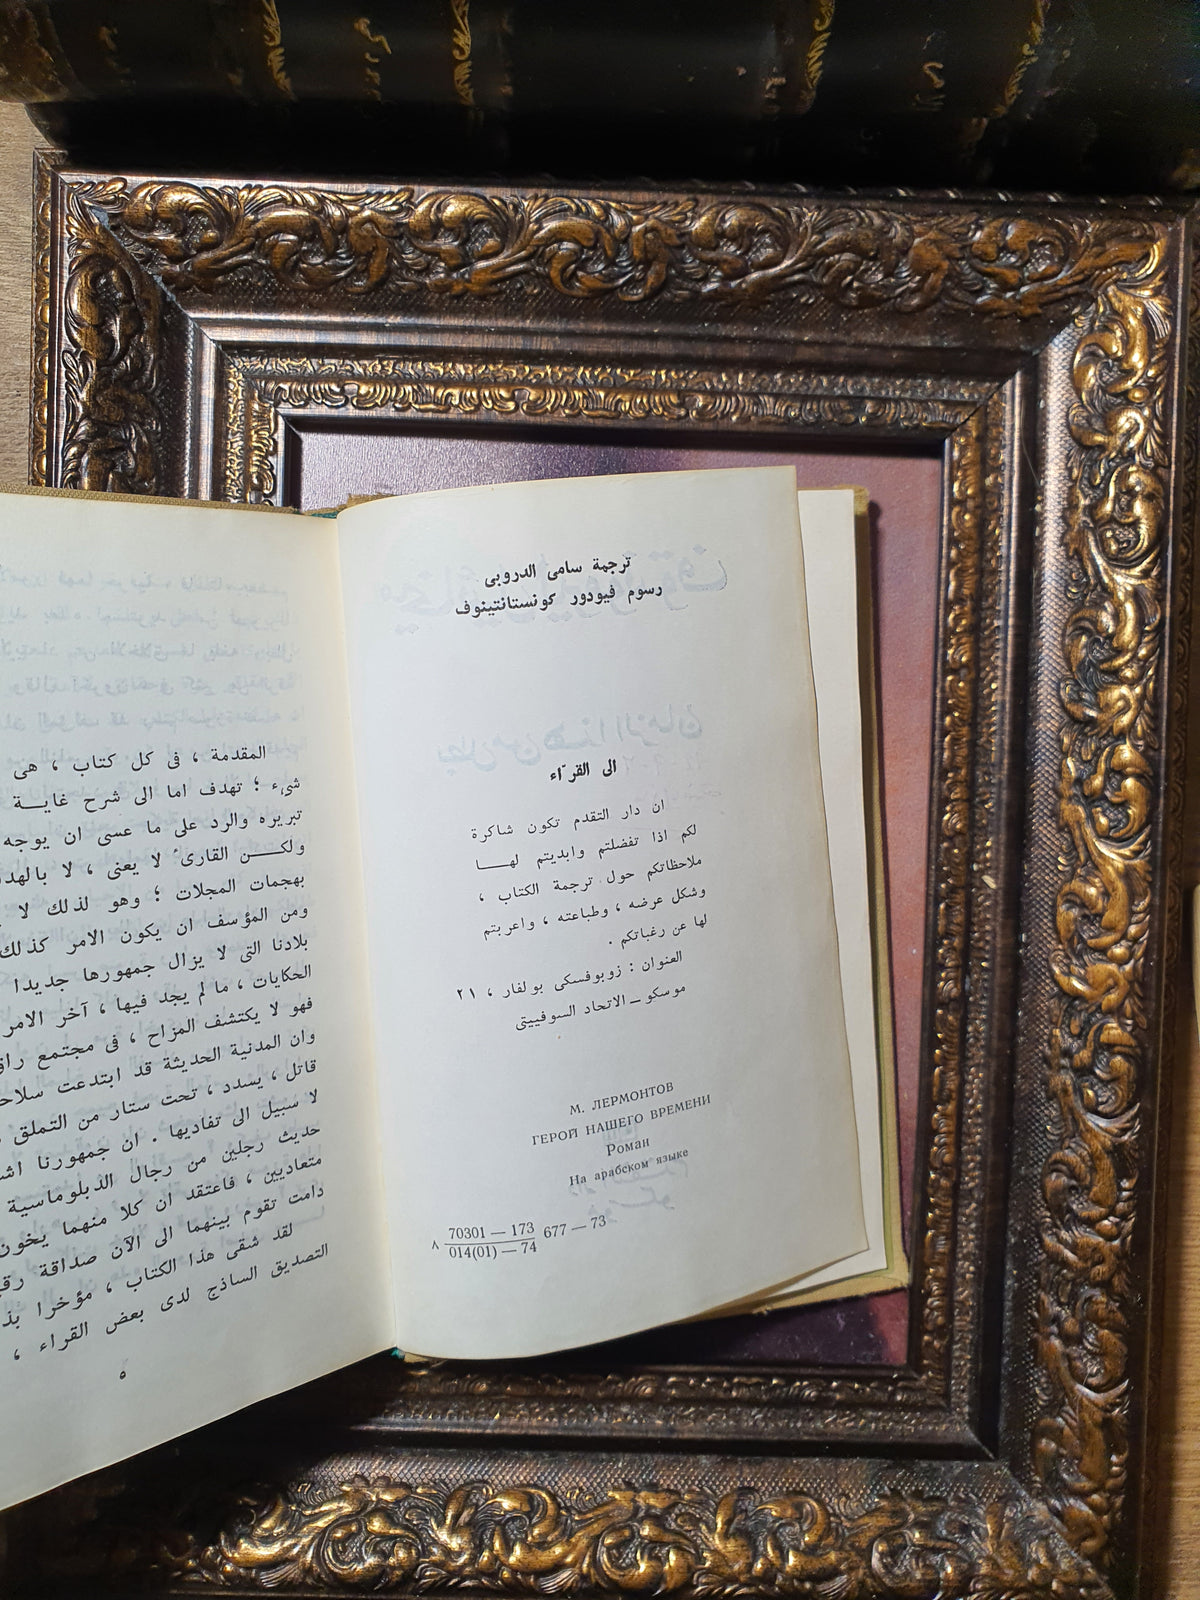 ترجمة سامى الدروبى
رسوم فيودور كونستانتينوف
الى القرّاء
ان دار التقدم تكون شاكرة
لكم اذا تفضلتم وابديتم لهـــا
ملاحظاتكم حول ترجمة الكتاب ،
وشكل عرضه ، وطباعته ، واعربتم
لها عن رغباتكم .
العنوان : زوبوفسكى بولفار ، ٢١
موسكو ــ الاتحاد السوفييتى
М. ЛЕРМОНТОВ
ГЕРОЙ НАШЕГО ВРЕМЕНИ
Роман
На арабском языке
٨ 70301 — 173 677 — 73
014(01) — 74
المقدمة ، فى كل كتاب ، هى
شىء ؛ تهدف اما الى شرح غايـــة
تبريره والرد على ما عسى ان يوجه
ولكـــن القارئ لا يعنى ، لا
بهجمات المجلات ؛ وهو لذلك لا
ومن المؤسف ان يكون الامر كذلك
بلادنا التى لا يزال جمهورها جديدا
الحكايات ، ما لم يجد فيها ، آخر الامر
فهو لا يكتشف المزاح ، فى مجتمع
وان المدنية الحديثة قد ابتدعت
قاتل ، يسدد ، تحت ستار من التملق
لا سبيل الى تفاديها . ان جمهورنا
حديث رجلين من رجال الدبلوماسية
متعاديين ، فاعتقد ان كلا منهما يخون
دامت تقوم بينهما الى الآن صداقة
لقد شقى هذا الكتاب ، مؤخرا
التصديق الساذج لدى بعض القراء ،
٥